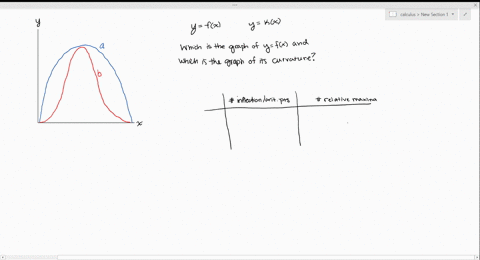 calculus > New Section 1
y = f(x) y = K(x)
Which is the graph of y=f(x) and
which is the graph of its curvature?
y
a
b
x
# inflection/crit. pts # relative maxima